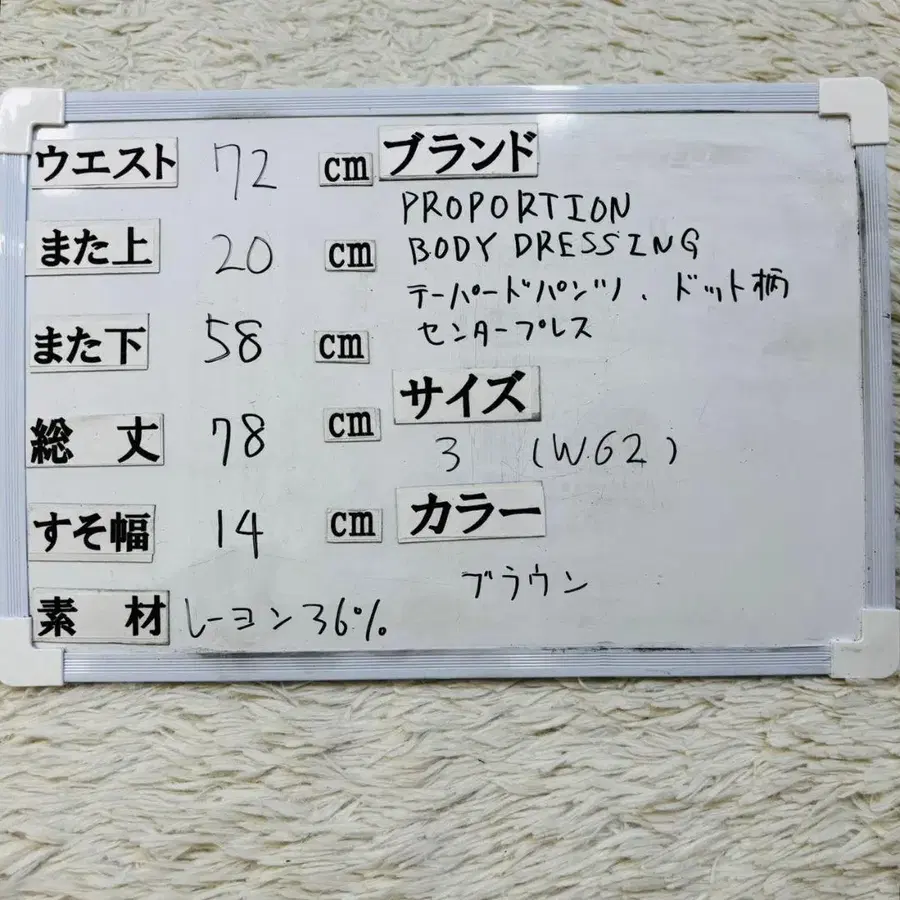 ウエスト 72 cm
また上 20 cm
また下 58 cm
総丈 78 cm
すそ幅 14 cm
素材 レーヨン36%
ブランド
PROPORTION
BODY DRESSING
テーパードパンツ、ドット柄
センタープレス
サイズ
3 (W62)
カラー
ブラウン